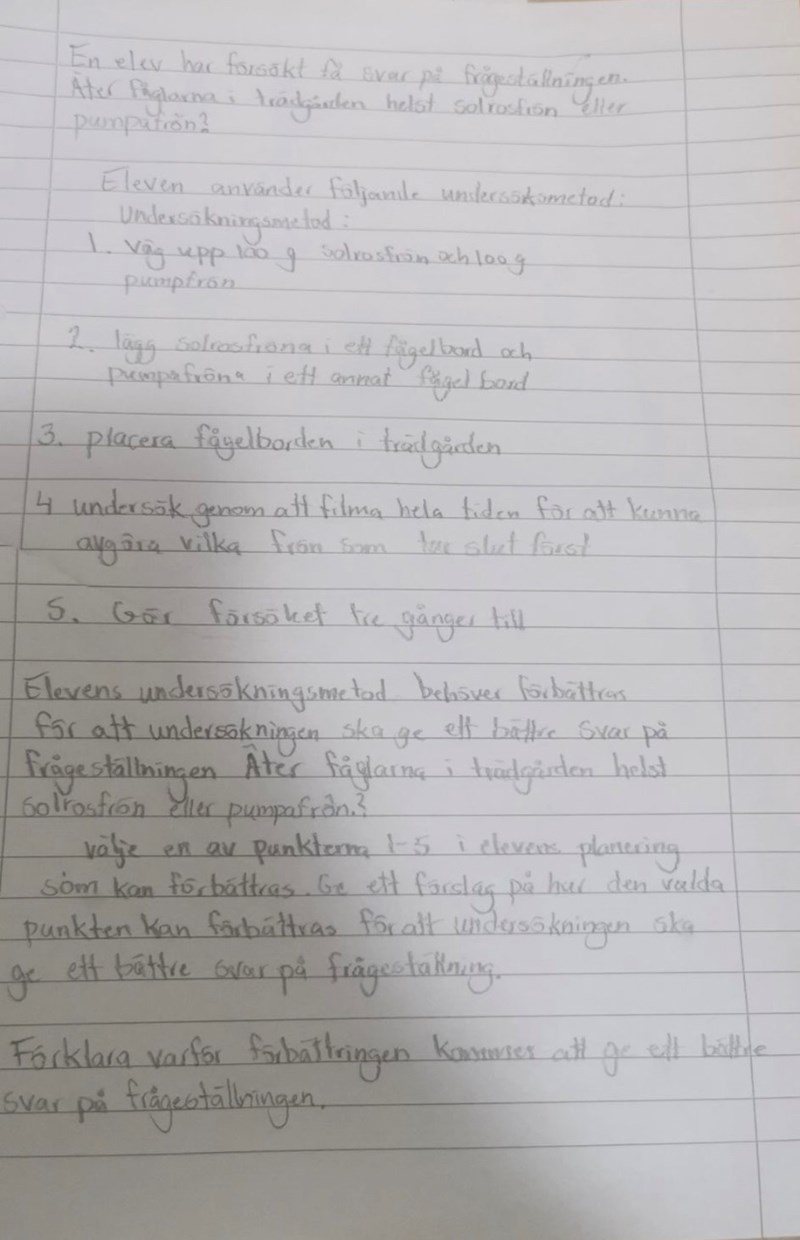 En elev har försökt få svar på frågeställningen.
Äter fåglarna i trädgården helst solrosfrön eller
pumpafrön?
Eleven använder följande undersöksmetod:
Undersökningsmetod:
1. Väg upp 100 g solrosfrön och 100g
pumpfrön
2. lägg solrosfröna i ett fågelbord och
pumpafröna i ett annat fågel bord
3. placera fågelborden i trädgården
4 undersök genom att filma hela tiden för att kunna
avgöra vilka frön som tar slut först
5. Gör försöket tre gånger till
Elevens undersökningsmetod behöver förbättras
för att undersökningen ska ge ett bättre svar på
frågeställningen Äter fåglarna i trädgården helst
solrosfrön eller pumpafrön.?
välje en av punkterna 1-5 i elevens planering
som kan förbättras. Ge ett förslag på hur den valda
punkten kan förbättras för att undersökningen ska
ge ett bättre svar på frågeställning.
Förklara varför förbättringen kommer att ge ett bättre
svar på frågeställningen.